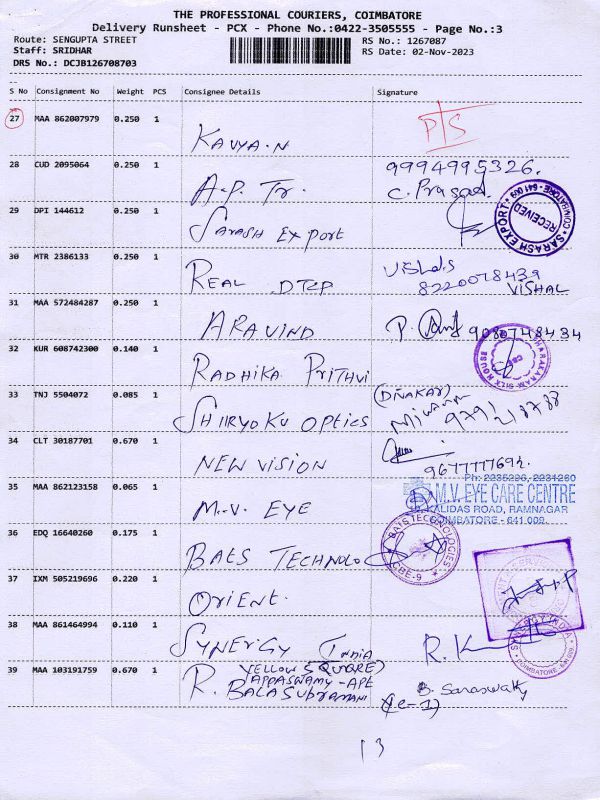 THE PROFESSIONAL COURIERS, COIMBATORE
Delivery Runsheet - PCX - Phone No.:0422-3505555 - Page No.:3
Route: SENGUPTA STREET
Staff: SRIDHAR
DRS No.: DCJB126708703
RS No.: 1267087
RS Date: 02-Nov-2023
S No Consignment No Weight PCS Consignee Details Signature
27 MAA 862007979 0.250 1
KAVYA.N
28 CUD 2095064 0.250 1 9994995326.
A.P. Tr. C. Prasad.
29 DPI 144612 0.250 1
Sarash Export
SARASH EXPORT COIMBATORE - 641 009
RECEIVED
30 MTR 2386133 0.250 1
REAL DTCP 8220078439
VISHAL
31 MAA 572484287 0.250 1
ARAVIND P. 9080748434
32 KUR 608742300 0.140 1
RADHIKA PRITHVI
SILK HOUSE
33 TNJ 5504072 0.085 1 (DINAKAR)
SHIRYOKU OPTICS
34 CLT 30187701 0.670 1
NEW VISION 9677777692.
Ph: 2235296, 2231260
35 MAA 862123158 0.065 1 M.V. EYE CARE CENTRE
M.V. EYE KALIDAS ROAD, RAMNAGAR
COIMBATORE - 641 009.
36 EDQ 16640260 0.175 1
BATS TECHNOLO
BATS TECHNOLOGIES
CBE-9
37 IXM 505219696 0.220 1
ORIENT.
38 MAA 861464994 0.110 1
SYNERGY INDIA R. K
COIMBATORE
39 MAA 103191759 0.670 1
YELLOW SQUARE)
APPASWAMY - APE
R. BALASUBRAMANI
B. Saraswathy
13